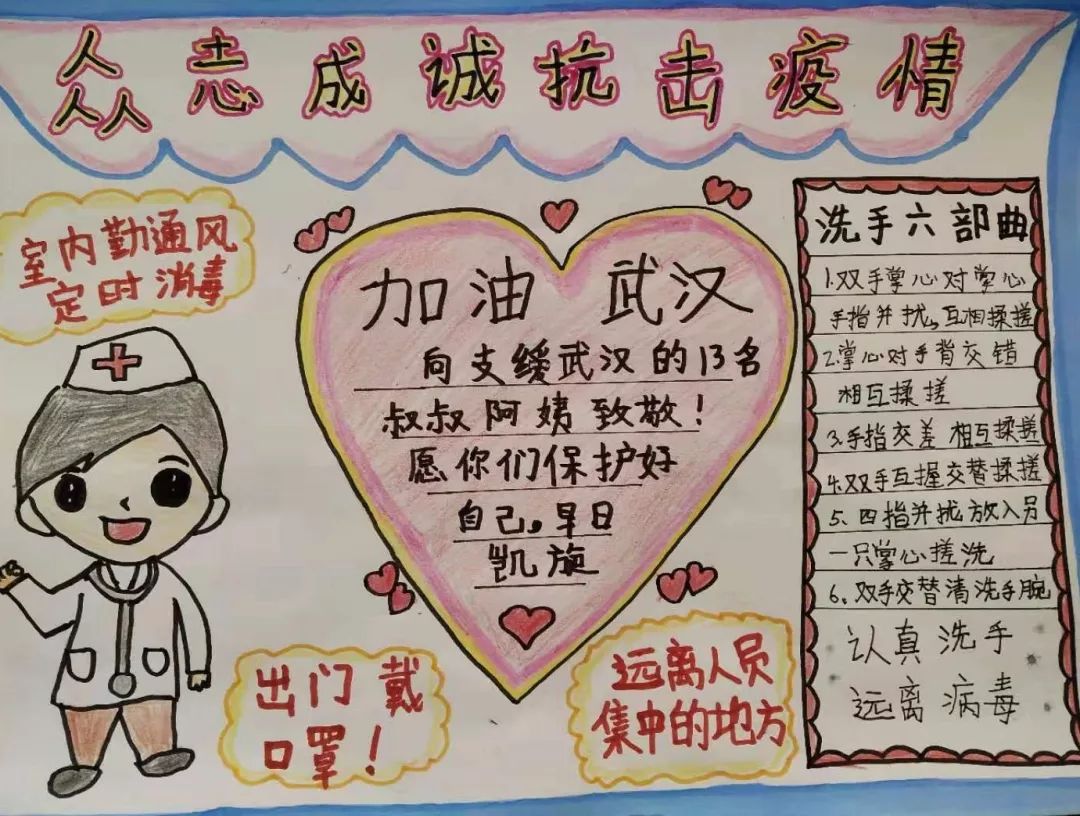 众志成诚抗击疫情
室内勤通风
定时消毒
加油 武汉
向支缓武汉的13名
叔叔阿姨致敬！
愿你们保护好
自己。早日
凯旋
出门戴
口罩！
远离人员
集中的地方
洗手六部曲
1.双手掌心对掌心
手指并扰，互相揉搓
2.掌心对手背交错
相互揉搓
3.手指交差 相互揉搓
4.双手互握交替揉搓
5、四指并扰放入另
一只掌心搓洗
6、双手交替清洗手腕
认真洗手
远离病毒